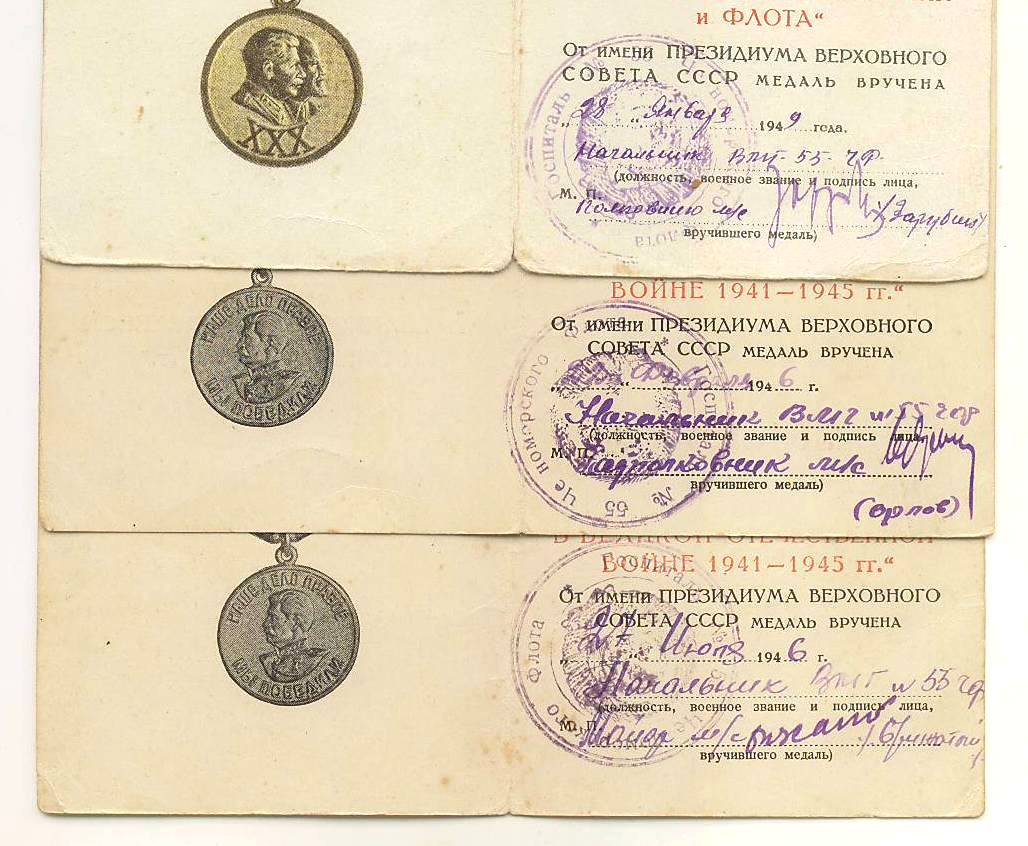 и ФЛОТА“
От имени ПРЕЗИДИУМА ВЕРХОВНОГО
СОВЕТА СССР МЕДАЛЬ ВРУЧЕНА
„28 “ Января 1949 года.
Начальник ВМГ-55-ЧФ
(должность, военное звание и подпись лица,
М. П.
Полковник м/с
вручившего медаль)
XXX
ВОЙНЕ 1941—1945 гг.“
От имени ПРЕЗИДИУМА ВЕРХОВНОГО
СОВЕТА СССР МЕДАЛЬ ВРУЧЕНА
„ “ Февраля 1946 г.
Начальник ВМГ №55 ЧФ
(должность, военное звание и подпись лица,
М. П. Подполковник м/с
вручившего медаль)
(Орлов)
НАШЕ ДЕЛО ПРАВОЕ
МЫ ПОБЕДИЛИ
Черноморского Флота Госпиталь № 55
В ВЕЛИКОЙ ОТЕЧЕСТВЕННОЙ
ВОЙНЕ 1941—1945 гг.“
От имени ПРЕЗИДИУМА ВЕРХОВНОГО
СОВЕТА СССР МЕДАЛЬ ВРУЧЕНА
„27 “ Июля 1946 г.
Начальник ВМГ №55 ЧФ
(должность, военное звание и подпись лица,
М. П. Майор м/с
вручившего медаль)
НАШЕ ДЕЛО ПРАВОЕ
МЫ ПОБЕДИЛИ